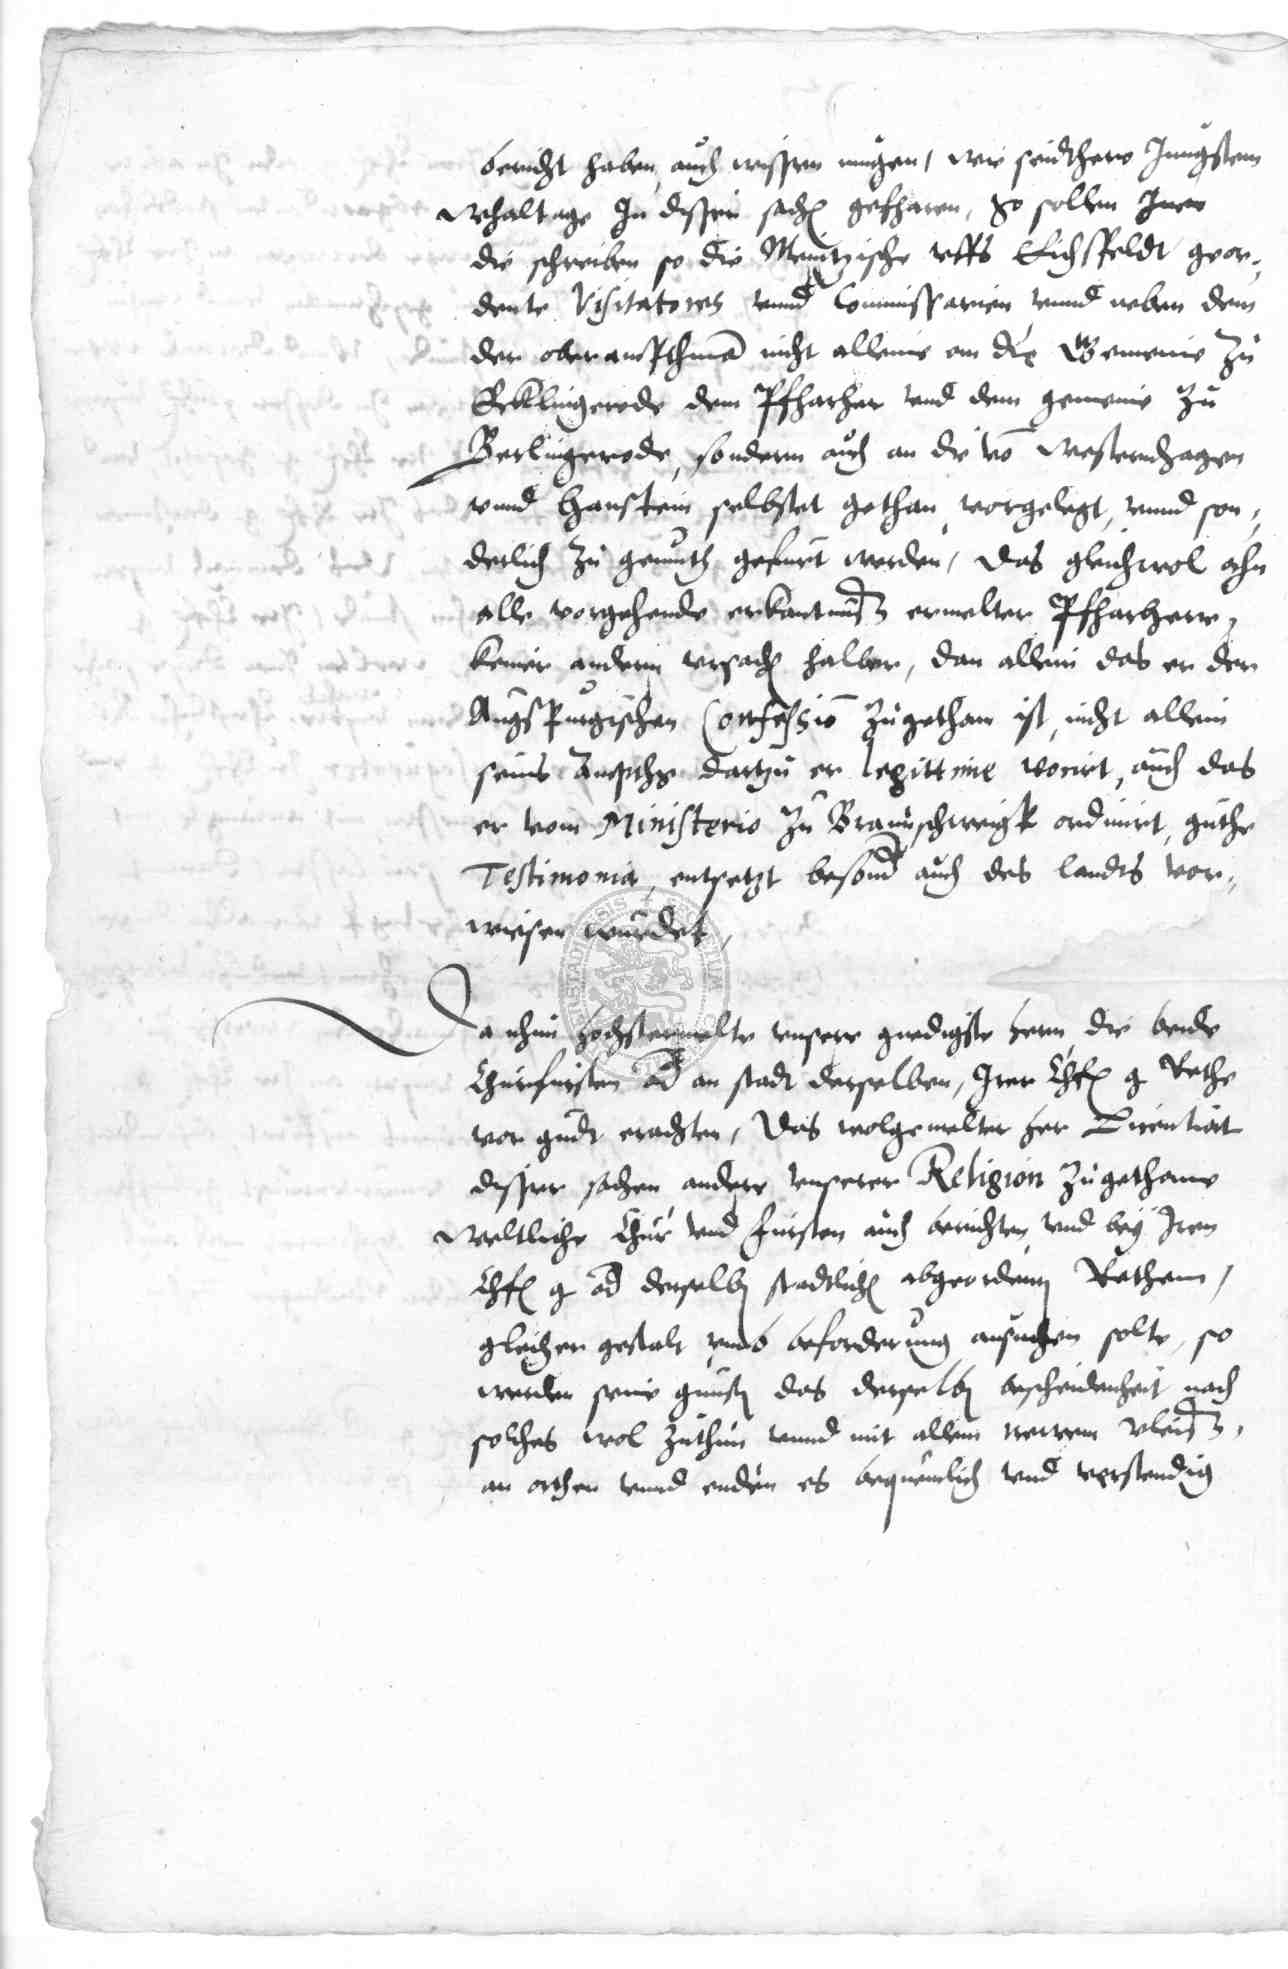 bericht haben, auch wissen mugen, wie seidthero Jungstem
Whaltage In disser sach gefharen, So sollen Jnen
die schreiben so die Meintzische uffs Eichsfeldt geor-
dente Visitatores vnnd Commissarien vnnd neben dem
der oberampthman nicht alleine an die Gemeine zu
Ecklingerode dem Pfharher vnd dem gemeine zu
Berlingerode, sondern auch an die von Westernhagen
vnnd Hanstein selbstet gethan vorgelegt, vnnd son-
derlich zu gemuth gefurt werden, Das gleichwol ahn
alle vorgehende erkantnus ermelter Pfharherr,
keiner andern vrsach halber, dan allein das er der
Augspurgischen Confessio zugethan ist, nicht allein
seins Ampths dartzu er legittime vocirt, auch das
er vom Ministerio zu Braunschweigk ordinirt, guthe
Testimonia, entsetzt besond auch des landts vor-
wiesen wurdet,
Da nhun hochstermelte vnsere gnedigste hern, die beide
Churfursten od an stadt derselben, Irer Chf g Rethe
vor gudt erachten, Das wolgemelter her Licentiat
disser sachen andere vnserer Religion zugethane
Weltliche Chur vnd fursten auch berichten vnd bey Iren
Chf g od derselben stadtlich abgeordenten Rethenn,
gleicher gestalt vmb beforderung ansuchen solte, so
werden seine gunst das derselben bescheidenheit nach
solches wol zuthun vnnd mit allem trewem vleis,
an orthen vnnd enden es bequemlich vnd verstendig